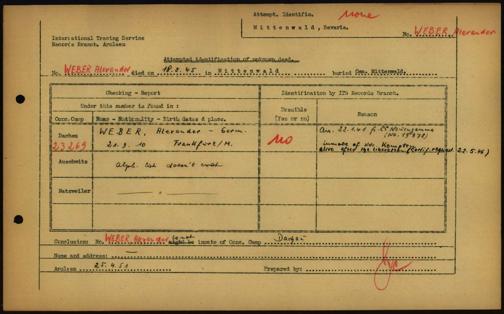 Attempt. Identific. none
Mittenwald, Bavaria.
No. WEBER Alexander
International Tracing Service
Records Branch, Arolsen
Attempted identification of unknown dead.
No. WEBER Alexander died on 18.8.45 in Mittenwald buried Cem. Mittenwald.
Checking - Report
Identification by ITS Records Branch.
Under this number is found in :
Conc. Camp
Name - Nationality - Birth dates & place.
Possible (Yes or no)
Reason
Dachau
23269
WEBER, Alexander - Germ.
21.3.10 Frankfurt/M.
no
Arr. 22.1.41 f.
inmate of
alive after the liberation 22.5.45)
Auschwitz
Alph. list doesn't exist
Natzweiler
Conclusion: No. WEBER Alexander cannot might be inmate of Conc. Camp Dachau
Name and address:
Arolsen 25.4.51
Prepared by: